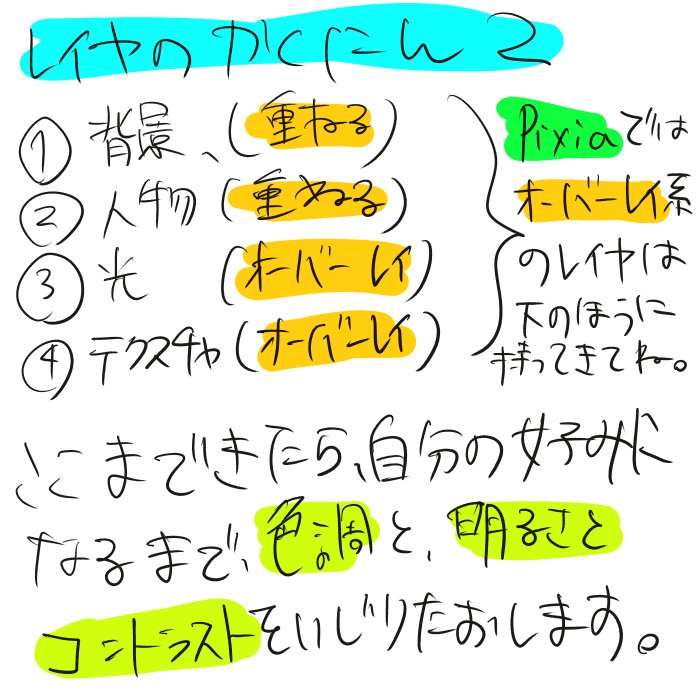 レイヤのかくにん2
① 背景、(重ねる)
② 人物(重ねる)
③ 光 (オーバーレイ)
④ テクスチャ(オーバーレイ)
Pixiaでは
オーバーレイ系
のレイヤは
下のほうに
持ってきてね。
ここまできたら、自分の好みに
なるまで、色の調と、明るさと
コントラストをいじりたおします。